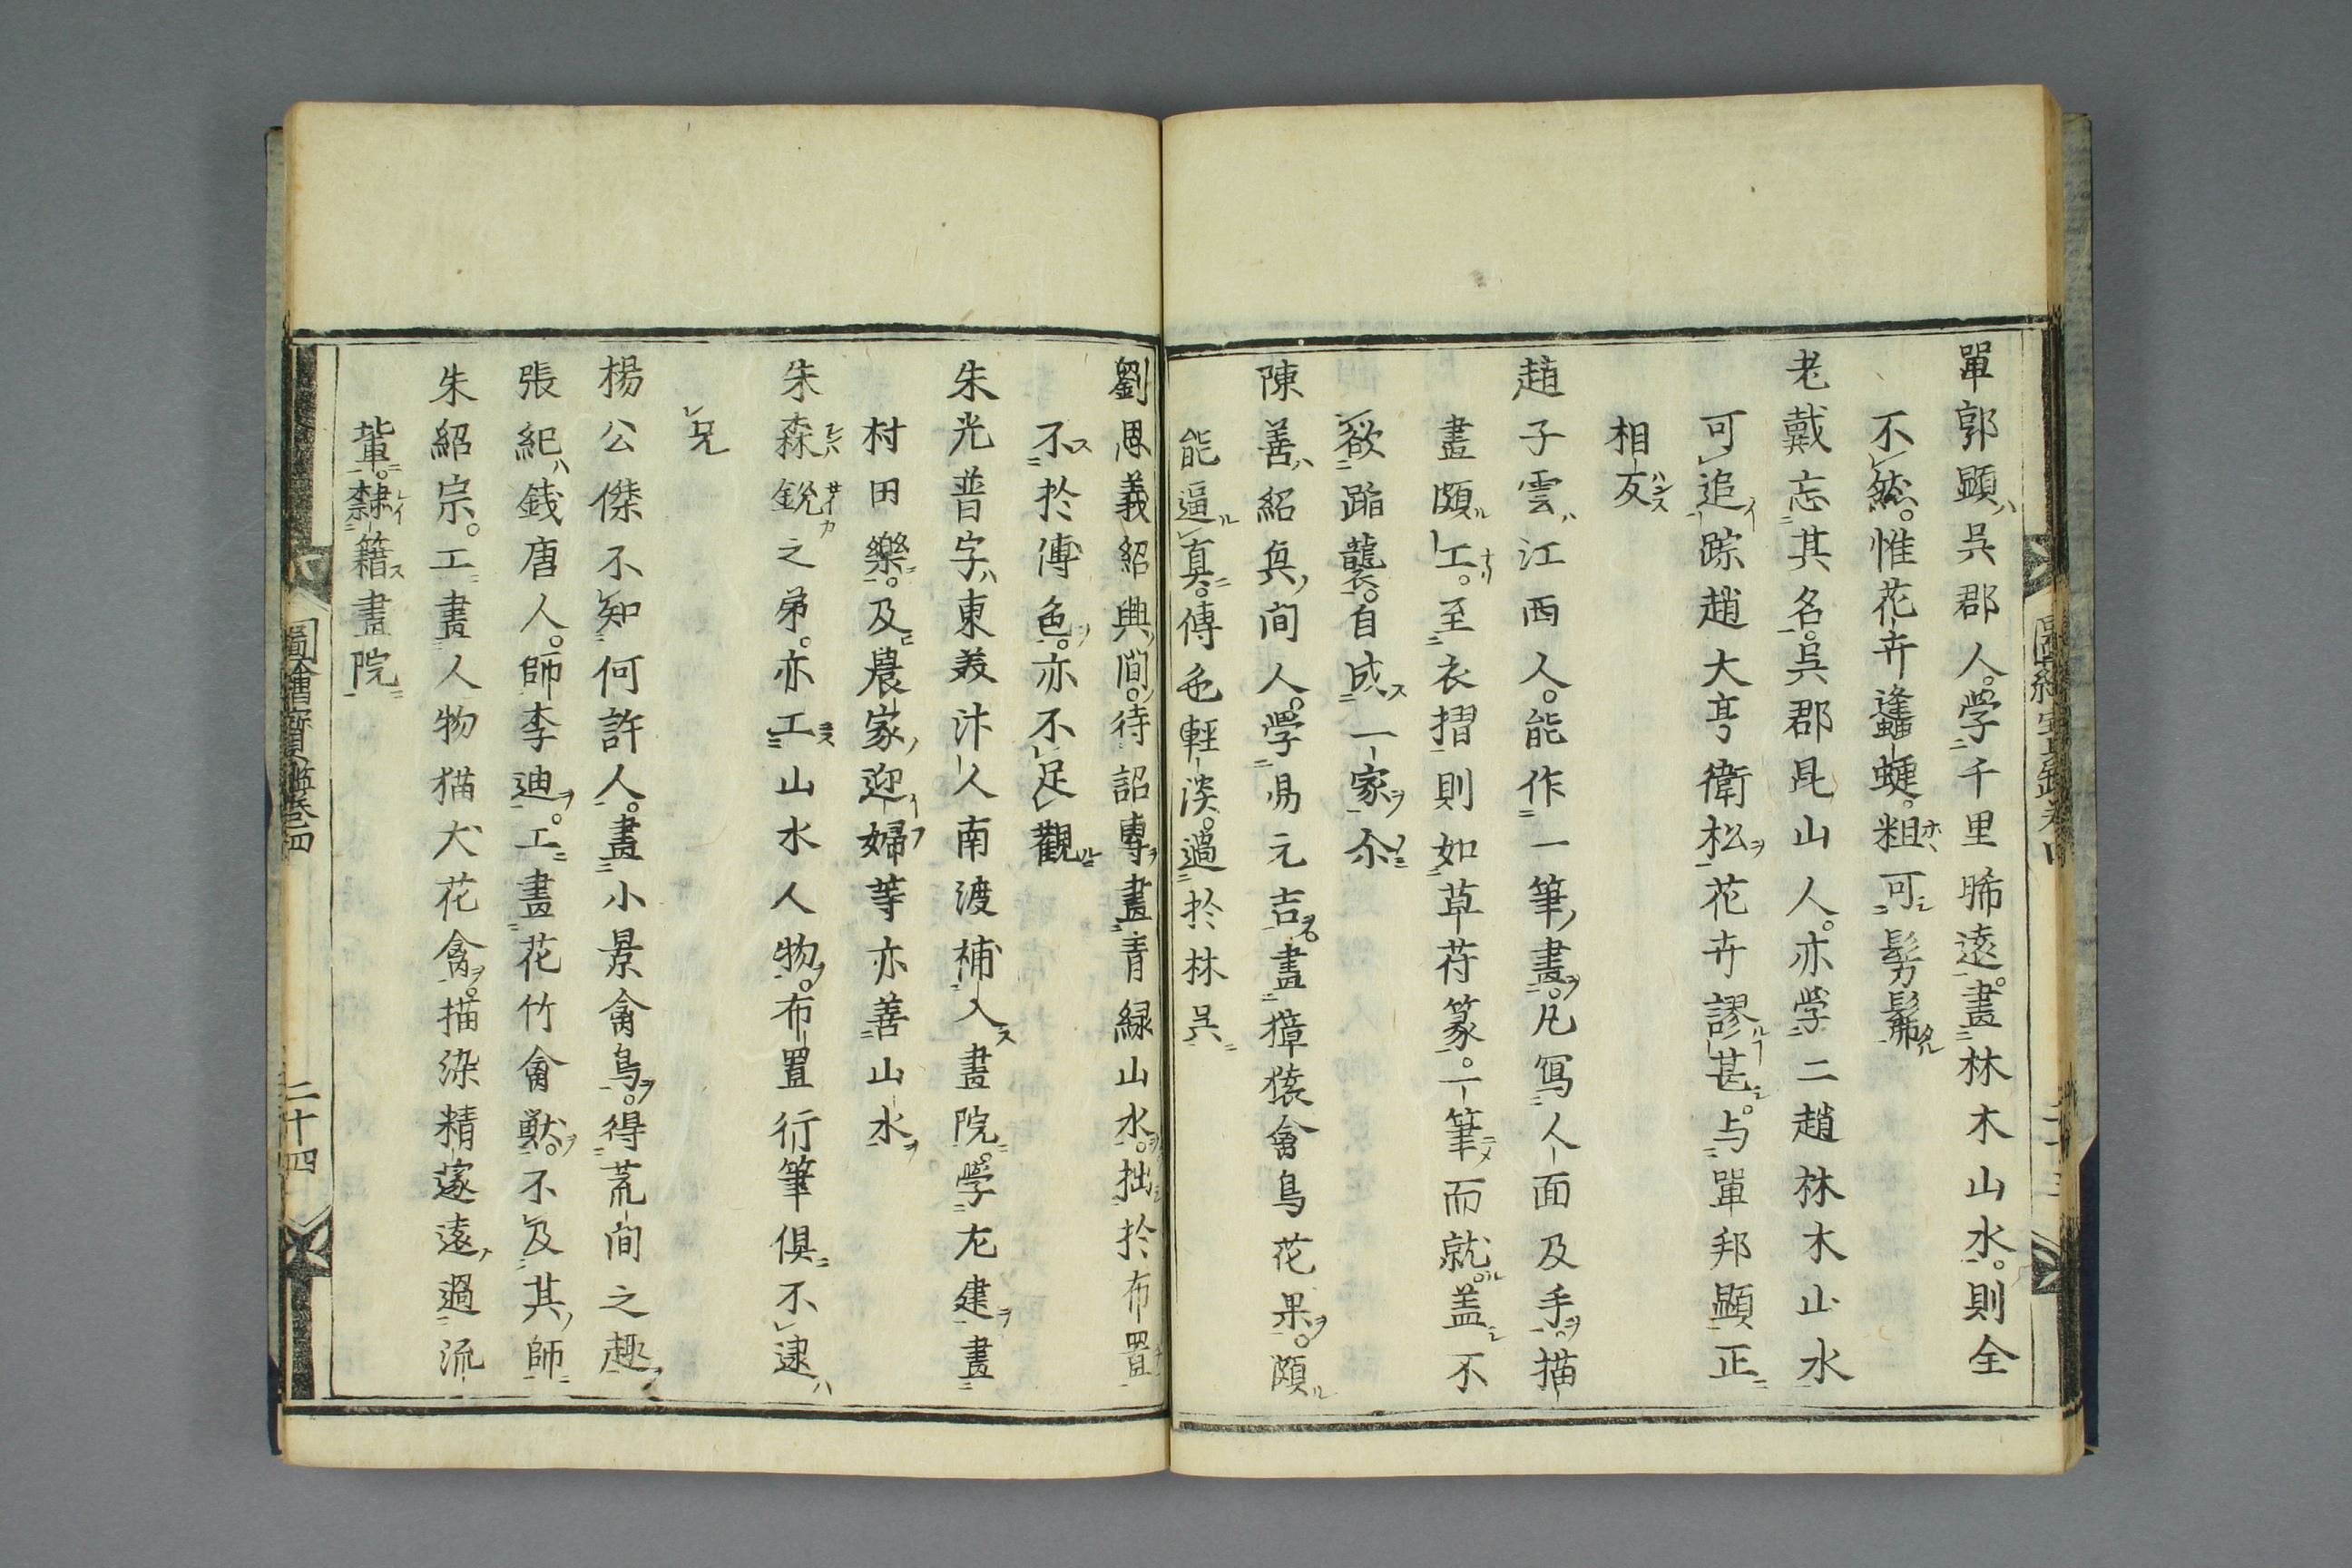 單郭顕ハ呉郡人。学千里晞遠。畫林木山水。則全
不然。惟花卉蟠蜨。粗可髣髴
老戴忘其名。呉郡昆山人。亦学二趙林木山水
可追踪趙大亨衛松花卉謬甚。与單邦顕正
相友
趙子雲ハ江西人。能作一筆畫。凡寫人面及手描
畫頗工。至衣摺則如草苻篆。一筆而就。盖不
欲蹈襲。自成一家尒
陳善ハ紹興間人。学易元吉畫獐猿禽鳥花果。頗
能逼真。傳色輕淡。過於林呉
劉思義紹興間。待詔專畫青緑山水。拙於布置
不於傅色。亦不足觀
朱光普字ハ東美汴人南渡補入畫院。学尤建畫
村田樂。及農家迎婦等亦善山水
朱森鋭之弟。亦工山水人物。布置行筆俱不逮
兄
楊公傑不知何許人。畫小景禽鳥。得荒間之趣
張紀ハ銭唐人。師李迪。工畫花竹禽獣。不及其師
朱紹宗。工畫人物猫犬花禽。描染精邃遠過流
輩。隸籍畫院
圖繪寳鑑卷四
二十四